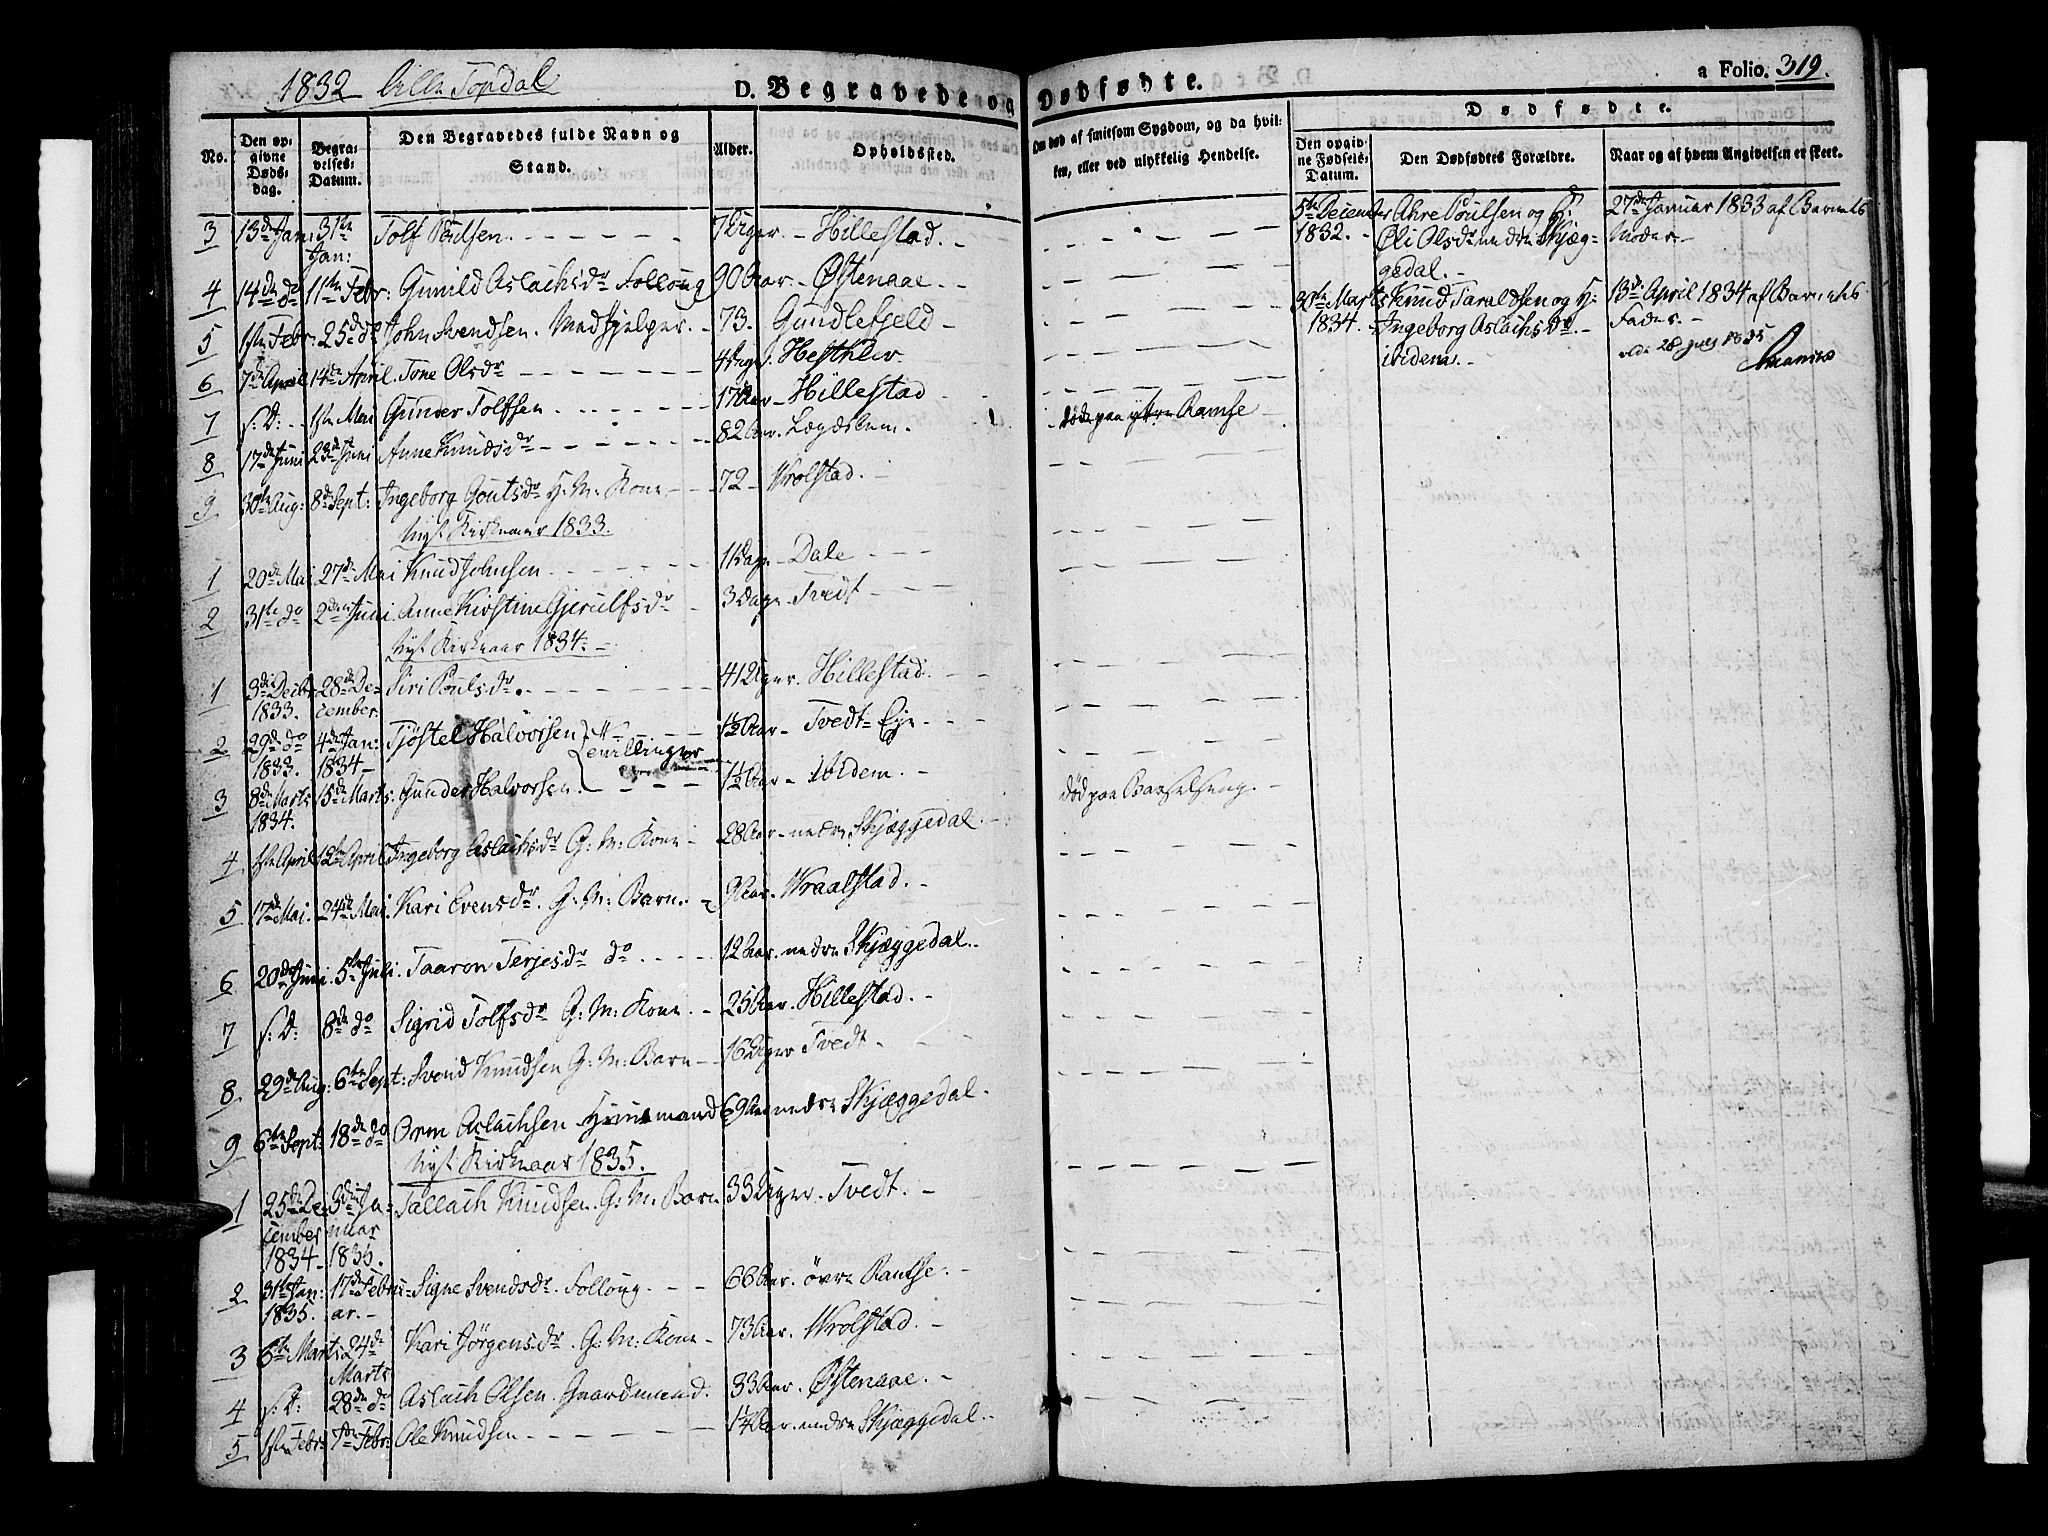 1832 Lille Topdal
D. Begravede og Dødfødte. a Folio. 319.
No. Den opgivne Dødsdag. Begravelses-Datum. Den Begravedes fulde Navn og Stand. Alder. Opholdssted. Om død af smitsom Sygdom, og da hvilken, eller ved ulykkelig Hendelse.
Dødfødte.
Den opgivne Fødsels-Datum. Den Dødfødtes Forældre. Naar og af hvem Angivelsen er skeet.
3 13de Jan: 31te Jan: Tolf Poulsen. 7 Uger. Hillestad.
4 14de do 11te Febr: Gunild Aslachsdr Folloug 90 Aar. Østenaae.
5 1ste Febr: 25de do John Svendsen. Medhjelper. 73. Gundlefjeld
6 7de April 14de April. Tone Olsdr 4 Dage. Hesthlev.
7 s: D: 1ste Mai Gunder Tolfsen. 17 Aar Hillestad død paa ytre Ramse
8 17de Juni 23de Juni Anne Knudsdr 82 Aar. Lægdslem.
9 30te Aug: 8de Sept: Ingeborg Goutsdr H: M: Kone 72 Wrolstad.
Nyt Kirkeaar 1833.
1 20de Mai 27de Mai Knud Johnsen 11 Dage Dale
2 31te do 2den Juni Anne Kirstine Gjerulfsdr 3 Dage Tvedt
Nyt Kirkeaar 1834.
1 3die Decbr 1833. 28de December. Siri Poulsdr. 41 Uger. Hillestad.
2 29de do 1833. 4de Jan: 1834 Tjøstel Halvorsen 1½ Aar Tvedt Eje
tvillinger
3 8de Marts 1834. 15de Marts. Gunder Halvorsen. 1½ Aar ibidem.
4 1ste April 12te April Ingeborg Aslachsdr G: M: Kone 28 Aar nedre Skjæggedal. død paa Barselseng.
5 17de Mai. 24de Mai. Kari Evensdr. G: M: Barn. 9 Aar. Wraalstad.
6 20de Juni. 5te Juli. Taaron Terjesdr do 12 Aar. nedre Skjæggedal.
7 s: D: 8de do Sigrid Tolfsdr G: M: Kone 25 Aar. Hillestad.
8 29de Aug: 6te Sept: Svend Knudsen G: M: Barn 16 Uger Tvedt
9 6te Sept: 18de do Orm Aslachsen Huusmand 69 Aar nedre Skjæggedal.
Nyt Kirkeaar 1835.
1 25de December 1834 3die Januar 1835. Tallach Knudsen. G: M: Barn 33 Uger. Tvedt.
2 31te Jan: 1835. 17de Februar. Signe Svendsdr. Folloug. 66 Aar. øvre Ramse.
3 6te Marts 24de Marts Kari Jørgensdr. G: M: Kone 73 Aar. Wrolstad.
4 s: D: 28de do Aslach Olsen. Gaardmand. 33 Aar. Østenaae.
5 1ste Febr: 7de Febr: Ole Knudsen 1¼ Aar. nedre Skjæggedal.
5te December 1832. Ahre Poulsen og H: Øli Olsdr nedre Skjæggedal. 27de Januar 1833 af Barnets Moder.
30te Marts 1834. Knud Taraldsen og H: Ingeborg Aslachsdr. ibidem. 13de April 1834 af Barnets Fader.